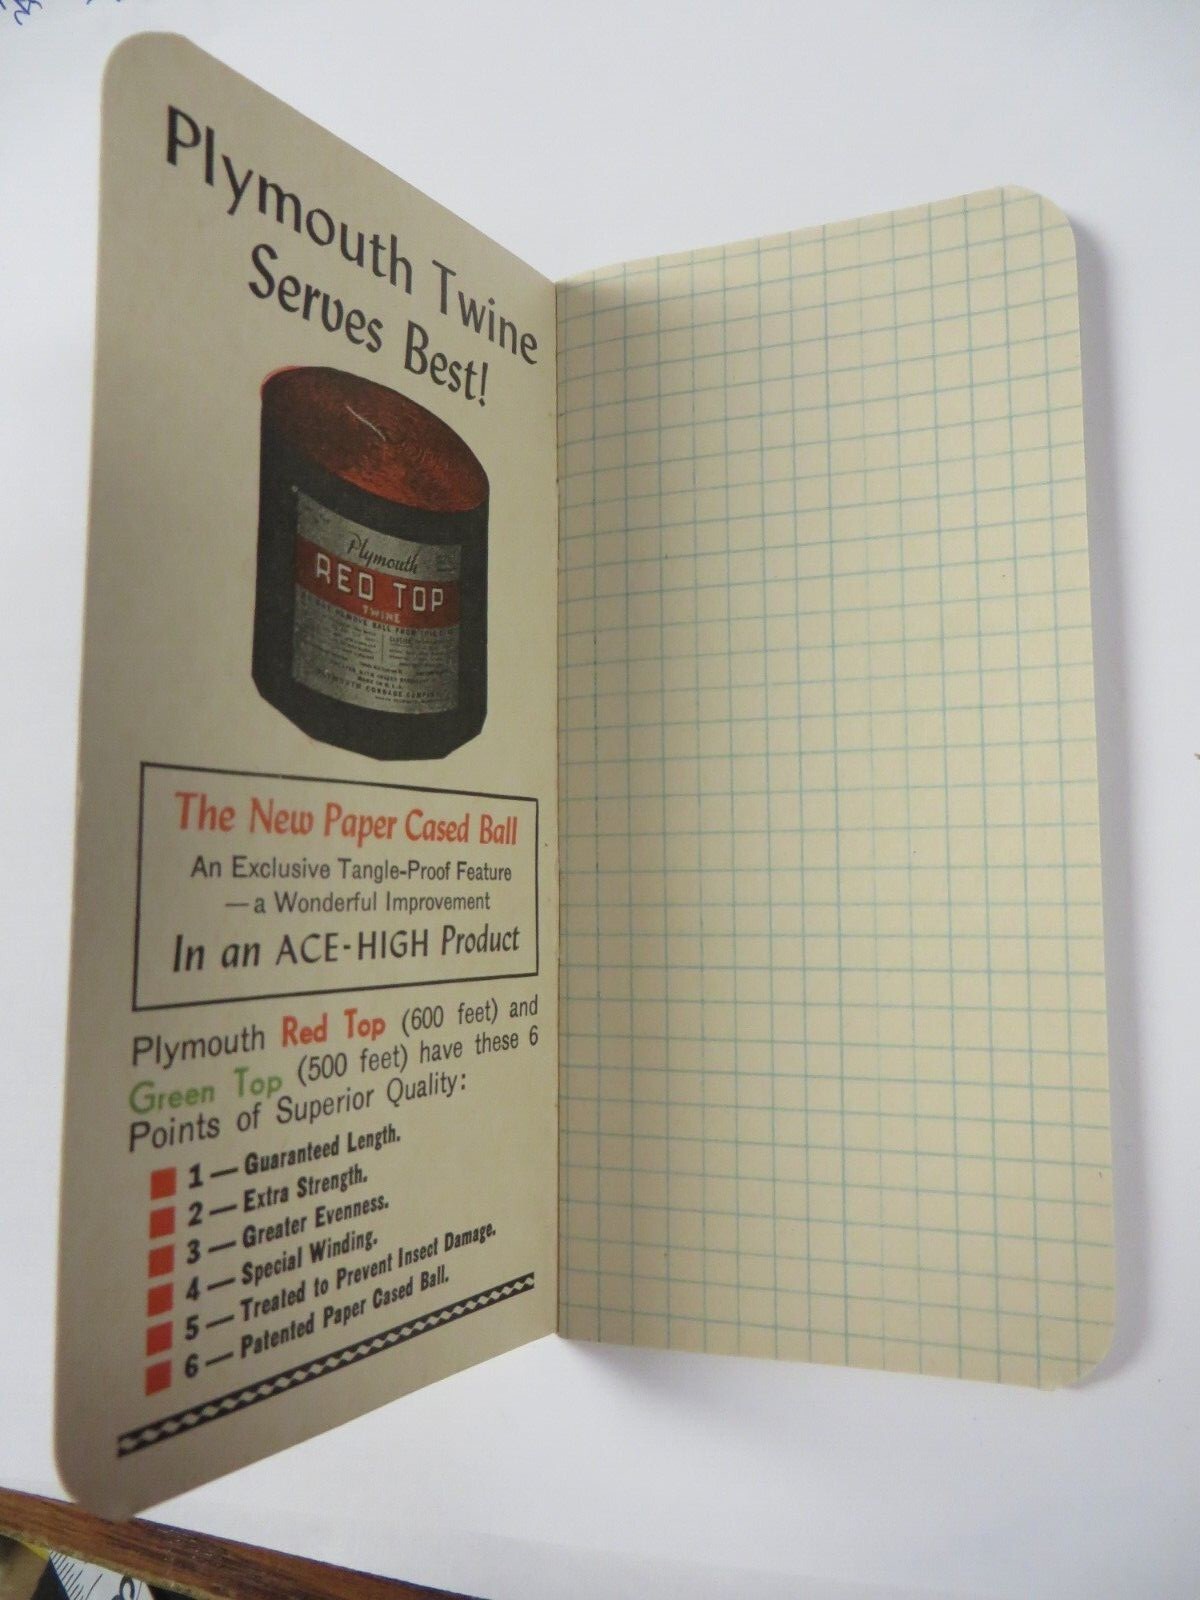 Plymouth Twine
Serves Best!
Plymouth
RED TOP
TWINE
PLYMOUTH CORDAGE COMPANY
The New Paper Cased Ball
An Exclusive Tangle-Proof Feature
— a Wonderful Improvement
In an ACE-HIGH Product
Plymouth Red Top (600 feet) and
Green Top (500 feet) have these 6
Points of Superior Quality:
1 — Guaranteed Length.
2 — Extra Strength.
3 — Greater Evenness.
4 — Special Winding.
5 — Treated to Prevent Insect Damage.
6 — Patented Paper Cased Ball.